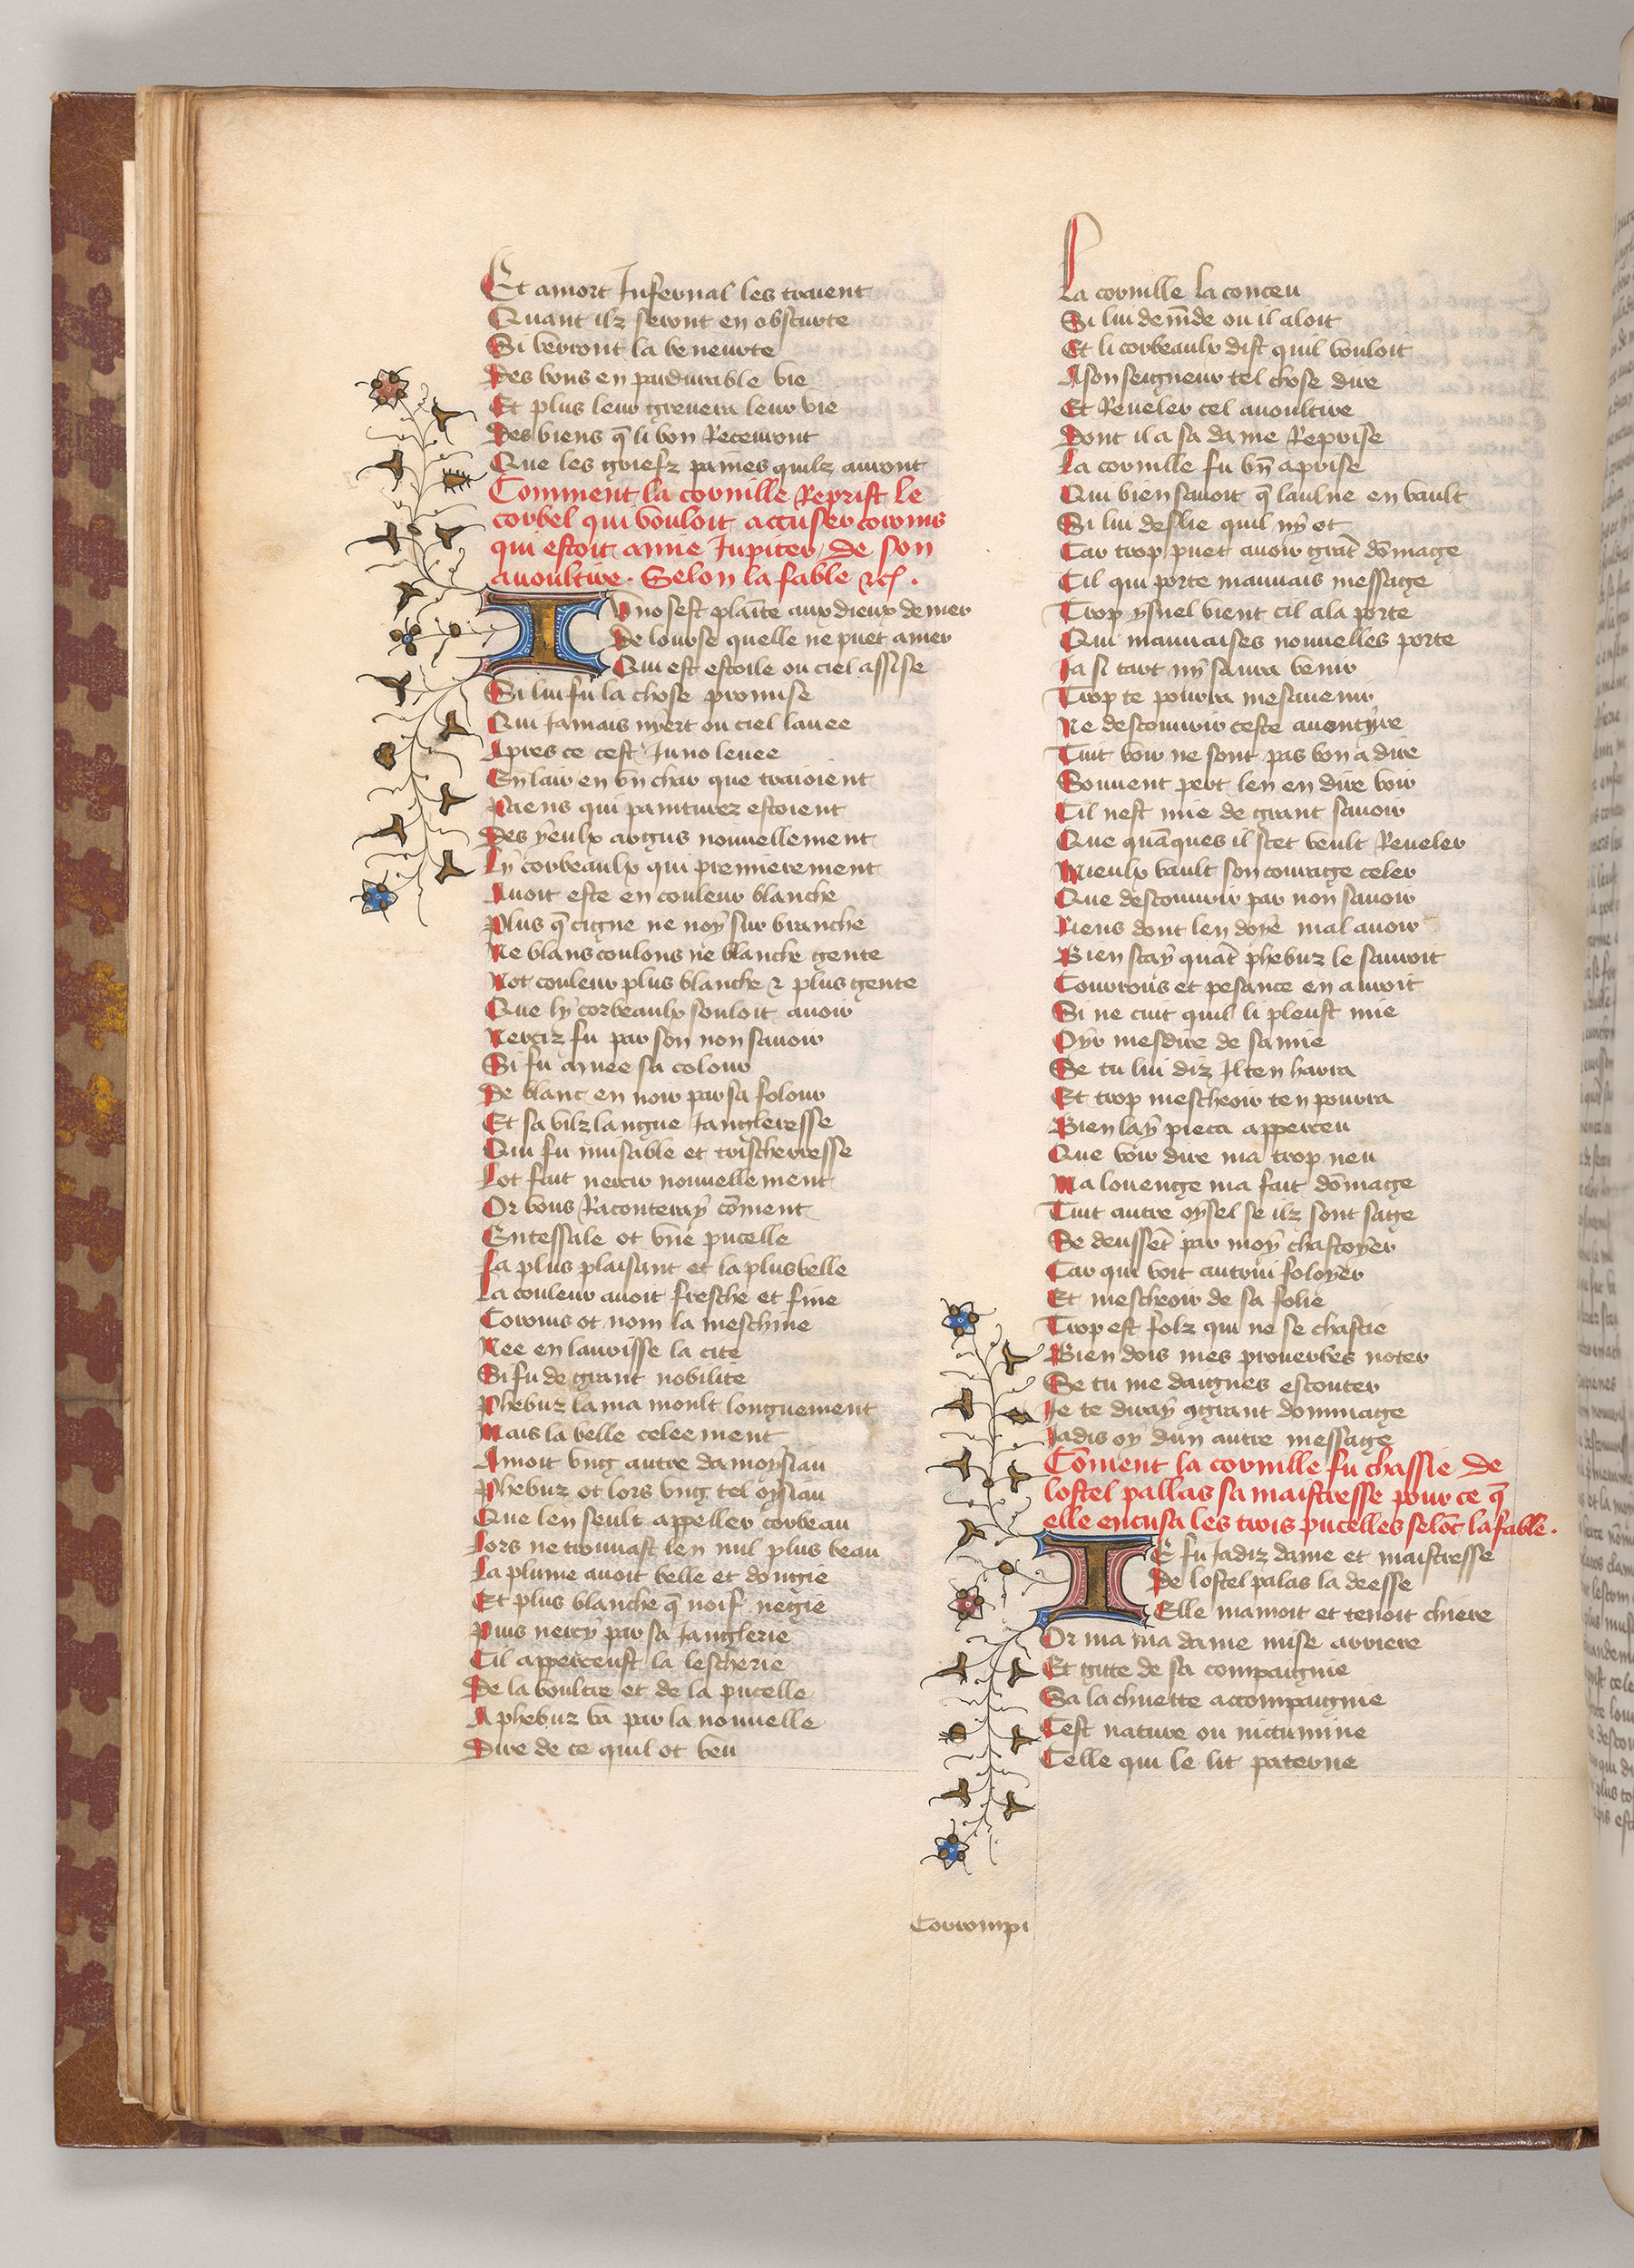 Et amort Infernal les traient
Quant ilz seront en obscurte
Si verront la beneurte
Des bons en pardurable vie
Et plus leur grevera leur vie
Des biens q̄ li bon Recevront
Que les griefz paines quilz auront
Comment la corneille Reprist le
corbel qui vouloit accuser coronis
qui estoit amie Jupiter, de son
avoultire. Selon la fable &c.
Juno sest plaīte aux dieux de mer
De lourse quelle ne puet amer
Qui est estoile ou ciel assise
Si lui fu la chose promise
Qui Jamais nyert ou ciel lavee
Apres ce cest Juno levee
En lair en vn char que traioient
Paens qui painturez estoient
Des yeulx argus nouvellement
Ly corbeaulx qui premierement
Avoit este en couleur blanche
Plus q̄ cigne ne noy sur branche
Ne blans coulons ne blanche gente
Not couleur plus blanche & plus gente
Que ly corbeaulx souloit avoir
Nerciz fu par son non savoir
Si fu muee sa colour
De blanc en noir par sa folour
Et sa vilz langue Jangleresse
Qui fu nuisable et trischerresse
Lot fait nercir nouvellement
Or vous Raconteray cōment
En tessale ot vne pucelle
La plus plaisant et la plus belle
La couleur avoit fresche et fine
Coronis ot nom la meschine
Nee en laurisse la cite
Si fu de grant nobilite
Phebuz lama moult longuement
Mais la belle celeement
Amoit vng autre damoysiau
Phebuz ot lors vng tel oysiau
Que len seult appeller corbeau
Lors ne trouvast len nul plus beau
La plume avoit belle et dongie
Et plus blanche q̄ noif negie
Puis nercy par sa Janglerie
Cil apperceust la lescherie
De la voultre et de la pucelle
A phebuz va par la nouvelle
Dire de ce quil ot veu
La corneille la conceu
Si lui demāde ou il aloit
Et li corbeaulx dist quil vouloit
A son seigneur tel chose dire
Et Reveler cel avoultire
Dont il a sa dame Reprise
La corneille fu bn̄ aprise
Qui bien savoit q̄ laulne en vault
Si lui deslie quil ny et
Car trop puet avoir grāt dōmage
Cil qui porte mauvais message
Trop ysnel vient cil ala porte
Qui mauvaises nouvelles porte
Ja si tart ny saura venir
Trop te pourra mesavenir
Ne descouvrir ceste aventyre
Tuit voir ne sont pas bon a dire
Souvent pert len en dire voir
Cil nest mie de grant savoir
Que quāques il scet veult Reveler
Mieulx vault son courage celer
Que descouvrir par non savoir
Riens dont len doye mal avoir
Bien scay quāt phebuz le sauroit
Courrous et pesance en auroit
Si ne cuit quil li pleust mie
Oyr mesdire de samie
Se tu lui diz Il ten harra
Et trop mescheoir ten pourra
Bien lay pieca apperceu
Que voir dire ma trop neu
Ma louenge ma fait dōmage
Tuit autre oysel se ilz sont sage
Se deussēt par moy chastoyer
Car qui voit autrui foloyer
Et mescheoir de sa folie
Trop est folz qui ne se chastie
Bien dois mes proverbes noter
Se tu me daignes escouter
Je te diray ꝯgrant dommage
Jadis oy dun autre message
Cōment la corneille fu chassie de
lostel pallas sa maistresse pour ce q̄
elle encusa les trois pucelles selōc la fable.
Je fu Jadiz dame et maistresse
De lostel palas la deesse
Elle mamoit et tenoit chiere
Or ma ma dame mise arriere
Et gitte de sa compaignie
Sa la chuette accompaignie
Cest nature ou nictimine
Celle qui le lit paterne
Corrompi